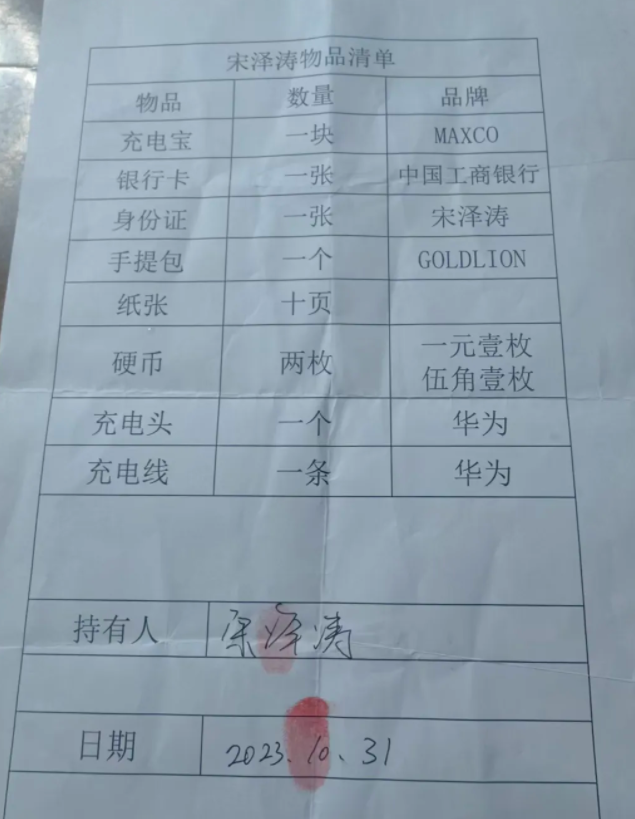 宋泽涛物品清单
物品 数量 品牌
充电宝 一块 MAXCO
银行卡 一张 中国工商银行
身份证 一张 宋泽涛
手提包 一个 GOLDLION
纸张 十页
硬币 两枚 一元壹枚
伍角壹枚
充电头 一个 华为
充电线 一条 华为
持有人 宋泽涛
日期 2023.10.31